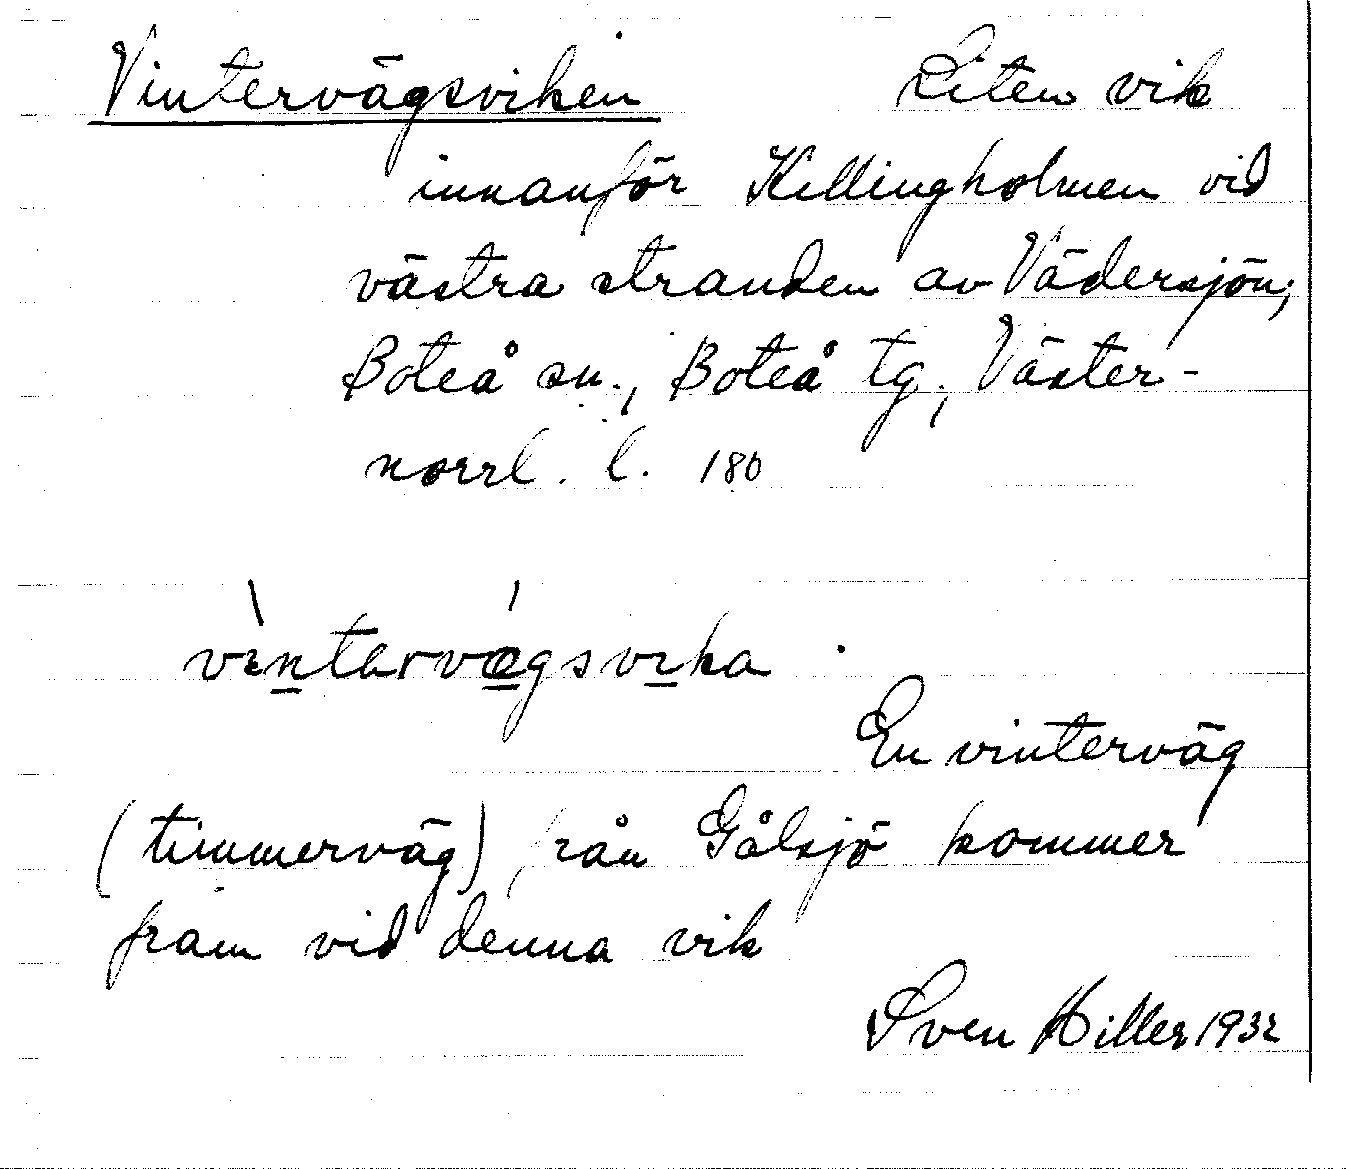 Vintervägsviken Liten vik
innanför Killingholmen vid
västra stranden av Vädersjön;
Boteå sn., Boteå tg., Väster-
norrl. l. 180
vìntərvǽgsvika .
En vinterväg
(timmerväg) från Gålsjö kommer
fram vid denna vik
Sven Hiller 1932